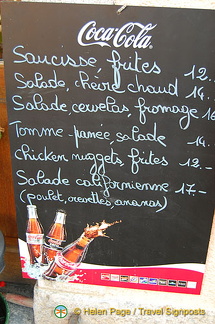 Coca-Cola
Saucisse, frites 12.-
Salade, chèvre chaud 14.-
Salade, cervelas, fromage 16
Tomme panée, salade 14.-
chicken nuggets, frites 12.-
Salade californienne 17-
(poulet, crevettes, ananas)
© Helen Page / Travel Signposts